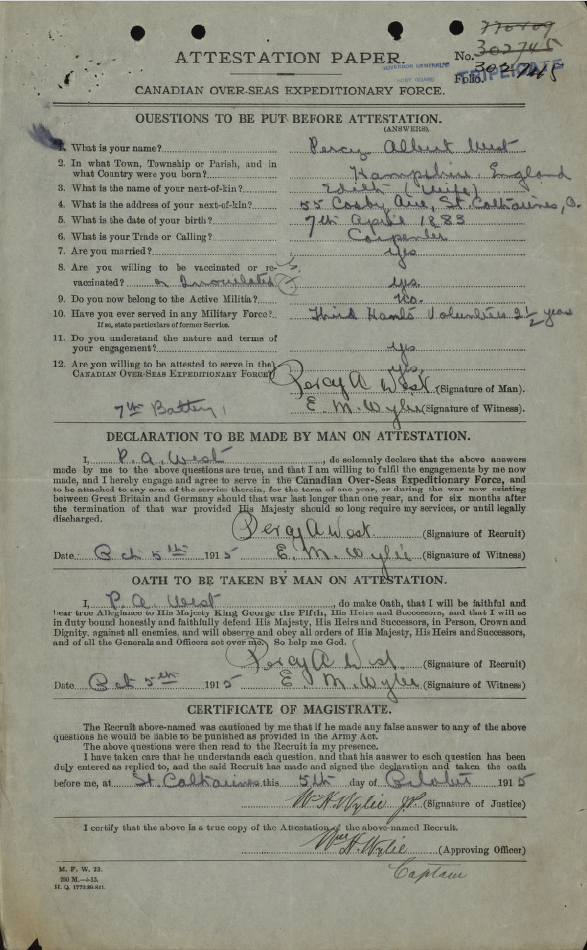 ATTESTATION PAPER.
No. 302745
Folio. 302745
TRIPLICATE
CANADIAN OVER-SEAS EXPEDITIONARY FORCE.
QUESTIONS TO BE PUT BEFORE ATTESTATION.
(ANSWERS).
1. What is your name? Percy Albert West
2. In what Town, Township or Parish, and in
what Country were you born? Hampshire England
3. What is the name of your next-of-kin? Edith (Wife)
4. What is the address of your next-of-kin? 55 Cosby Ave, St. Catharines, O.
5. What is the date of your birth? 7th April 1883
6. What is your Trade or Calling? Carpenter
7. Are you married? Yes
8. Are you willing to be vaccinated or re-
vaccinated? or Innoculated yes.
9. Do you now belong to the Active Militia? No.
10. Have you ever served in any Military Force? Third Hants Volunteers 2½ years
If so, state particulars of former Service.
11. Do you understand the nature and terms of
your engagement? yes
12. Are you willing to be attested to serve in the yes,
CANADIAN OVER-SEAS EXPEDITIONARY FORCE?
Percy A West (Signature of Man).
7th Battery E. M. Wylie (Signature of Witness).
DECLARATION TO BE MADE BY MAN ON ATTESTATION.
I, P. A. West, do solemnly declare that the above answers
made by me to the above questions are true, and that I am willing to fulfil the engagements by me now
made, and I hereby engage and agree to serve in the Canadian Over-Seas Expeditionary Force, and
to be attached to any arm of the service therein, for the term of one year, or during the war now existing
between Great Britain and Germany should that war last longer than one year, and for six months after
the termination of that war provided His Majesty should so long require my services, or until legally
discharged.
Percy A West (Signature of Recruit)
Date Oct 5th 1915 E. M. Wylie (Signature of Witness)
OATH TO BE TAKEN BY MAN ON ATTESTATION.
I, P. A. West, do make Oath, that I will be faithful and
bear true Allegiance to His Majesty King George the Fifth, His Heirs and Successors, and that I will as
in duty bound honestly and faithfully defend His Majesty, His Heirs and Successors, in Person, Crown and
Dignity, against all enemies, and will observe and obey all orders of His Majesty, His Heirs and Successors,
and of all the Generals and Officers set over me. So help me God.
Percy A West (Signature of Recruit)
Date Oct 5th 1915 E. M. Wylie (Signature of Witness)
CERTIFICATE OF MAGISTRATE.
The Recruit above-named was cautioned by me that if he made any false answer to any of the above
questions he would be liable to be punished as provided in the Army Act.
The above questions were then read to the Recruit in my presence.
I have taken care that he understands each question, and that his answer to each question has been
duly entered as replied to, and the said Recruit has made and signed the declaration and taken the oath
before me, at St. Catharines this 5th day of October 1915
Wm H Wylie J.P. (Signature of Justice)
I certify that the above is a true copy of the Attestation of the above-named Recruit.
Wm H. Wylie (Approving Officer)
Captain
M. F. W. 23.
H. Q. 1772-39-841.